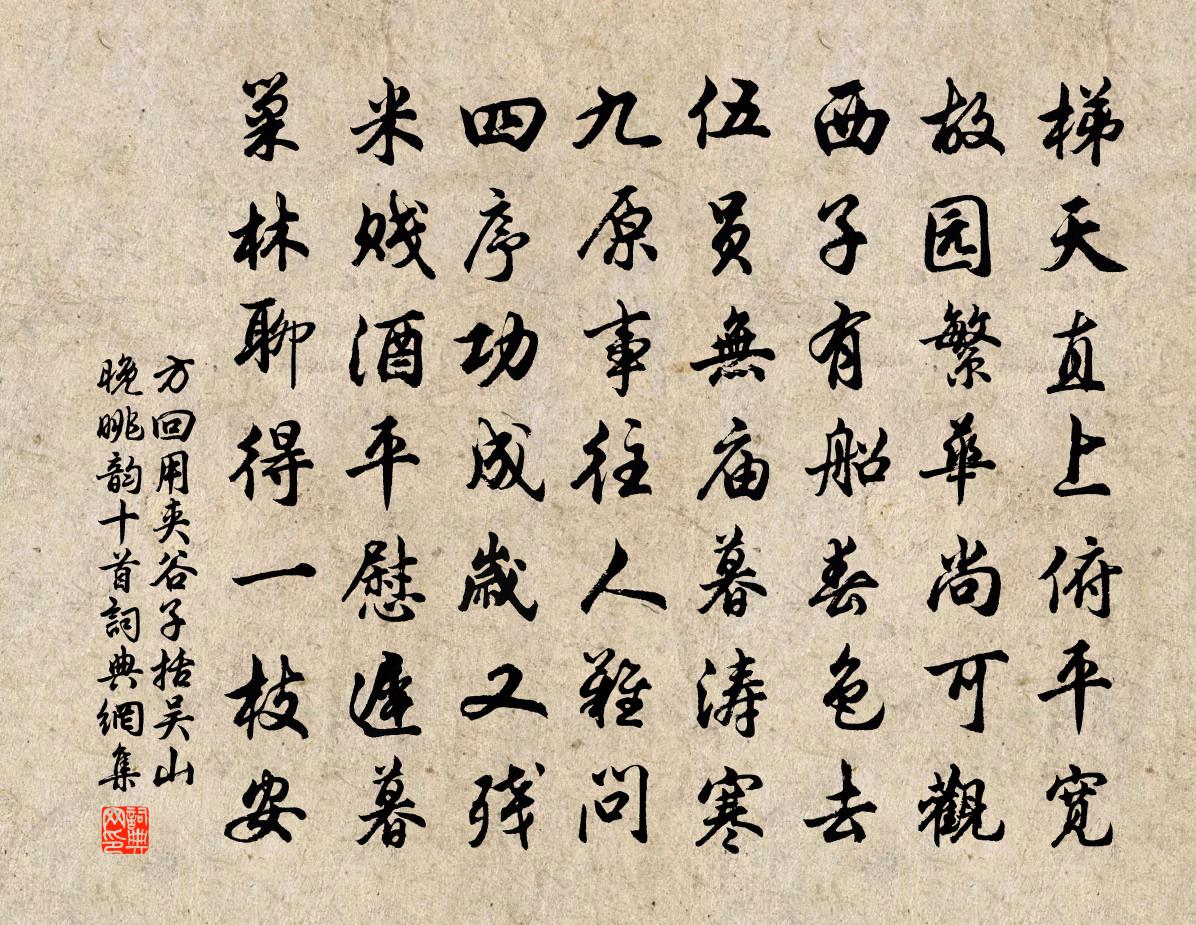 梯天直上俯平寛
故园繁華尚可觀
西子有船春色去
伍员無庙暮涛寒
九原事往人難问
四序功成歲又残
米贱酒平慰遲暮
巢林聊得一枝安
方回用夹谷子括吴山
晚眺韵十首詞典網集
詞典
网印